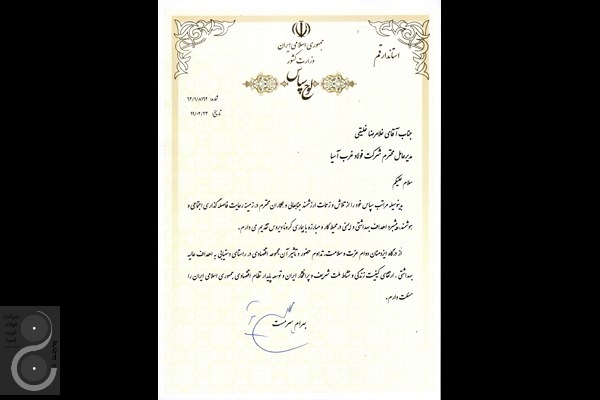 جمهوری اسلامی ایران
وزارت کشور
استاندار قم
لوح سپاس
شماره: ۹۲/۱/۸۶۹۲
تاریخ:
جناب آقای غلامرضا خلیقی
مدیرعامل محترم شرکت فولاد غرب آسیا
سلام علیکم
بدینوسیله مراتب سپاس خود را از تلاش و زحمات ارزشمند جنابعالی و همکاران محترم در زمینه رعایت فاصله گذاری اجتماعی و
هوشمند، پیشبرد اهداف بهداشتی و ایمنی در محیط کار و مبارزه با بیماری کرونا ویروس تقدیم می دارم.
از درگاه ایزد منان دوام عزت و سلامت، تداوم حضور و تأثیر آن مجموعه اقتصادی در راستای دستیابی به اهداف عالیه
بهداشتی، ارتقای کیفیت زندگی و نشاط ملت شریف و پرافتخار ایران و توسعه پایدار نظام اقتصادی جمهوری اسلامی ایران را
مسئلت دارم.
بهرام سرمست
شرکت
فولاد
غرب
آسیا